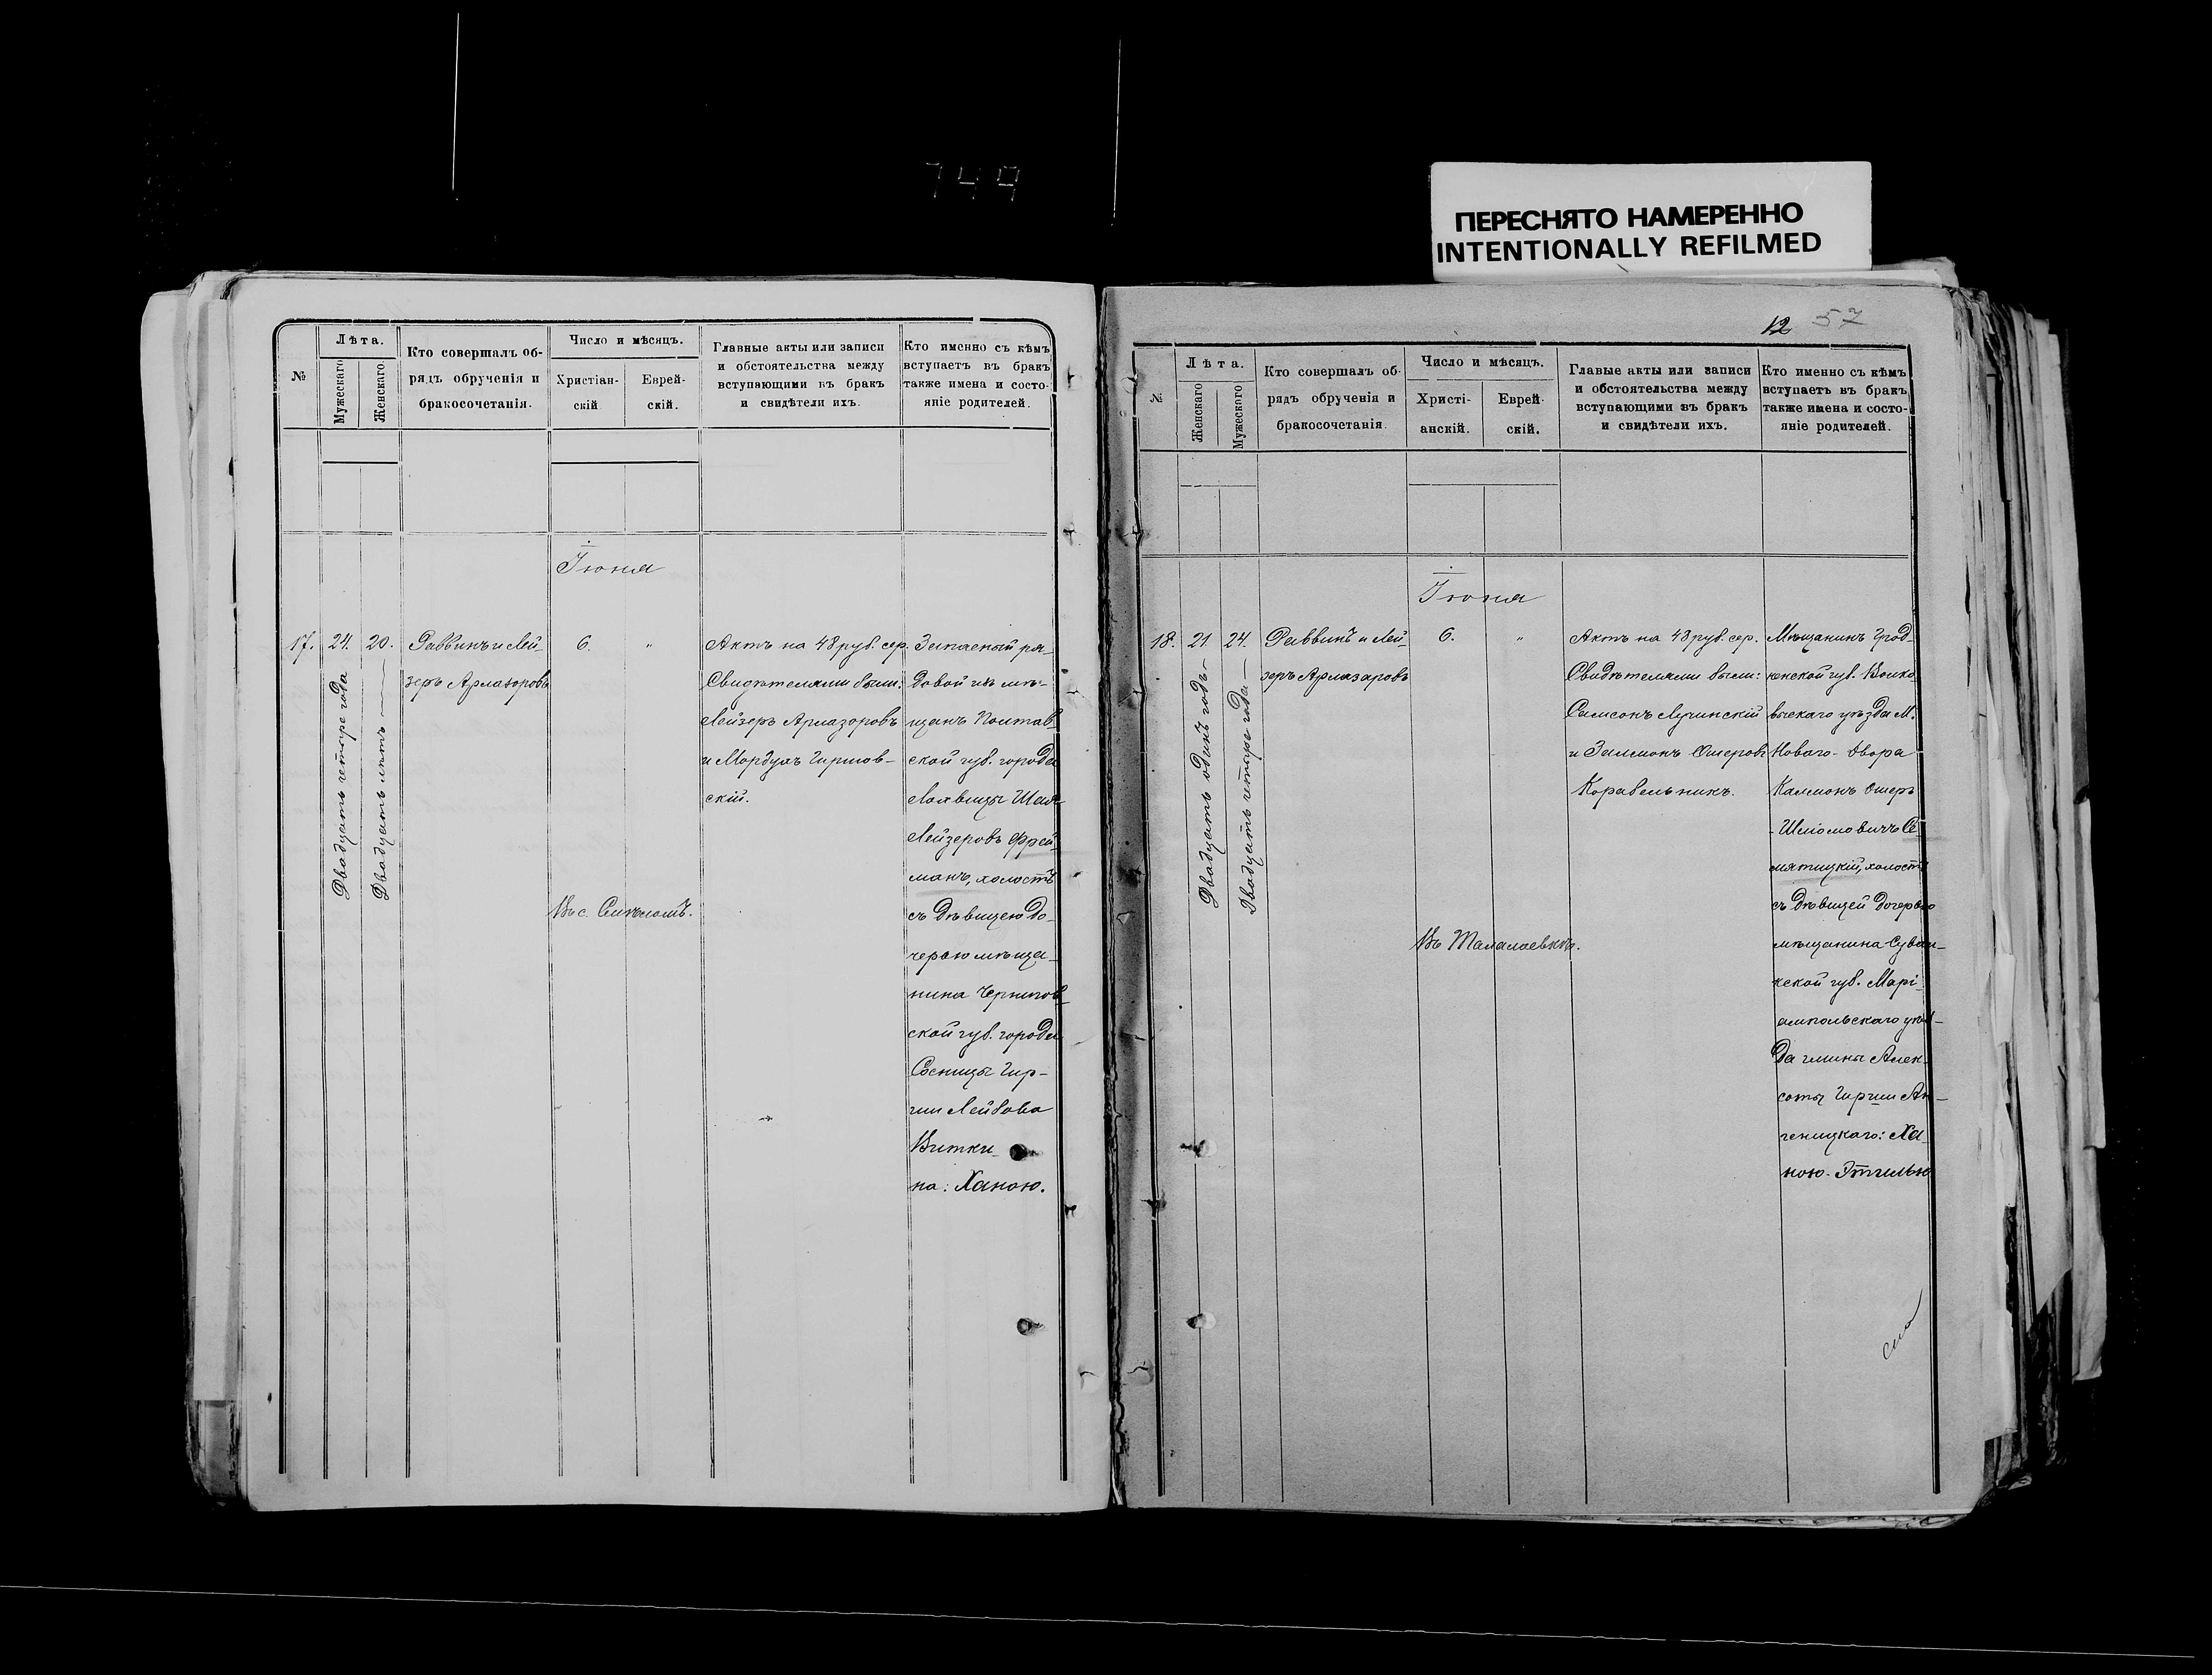 749
ПЕРЕСНЯТО НАМЕРЕННО
INTENTIONALLY REFILMED
№
Лѣта.
Мужескаго
Женскаго
Кто совершалъ об-
рядъ обрученія и
бракосочетанія.
Число и мѣсяцъ.
Христіан-
скій
Еврей-
скій.
Главные акты или записи
и обстоятельства между
вступающими въ бракъ
и свидѣтели ихъ.
Кто именно съ кѣмъ
вступаетъ въ бракъ
также имена и состо-
яніе родителей.
Іюня
17.
24.
Двадцать четыре года
20.
Двадцать лѣтъ
Раввинъ и Лей-
зеръ Арлазоровъ
6.
"
Въ с.
Актъ на 48 руб. сер.
Свидѣтелями были:
Лейзеръ Арлазоровъ
и Мордухъ Гиршов-
скій.
Запасный ря-
довой изъ мѣ-
щанъ Полтав-
ской губ. города
Лохвицы Шая-
Лейзеровъ Фрей-
манъ, холостъ
съ дѣвицею до-
черью мѣща-
нина Чернигов-
ской губ. города
Сосницы Гир-
ши Лейбова
Витки-
на: Ханою.
12 57
№
Лѣта.
Женскаго
Мужескаго
Кто совершалъ об-
рядъ обрученія и
бракосочетанія.
Число и мѣсяцъ.
Христі-
анскій.
Еврей-
скій.
Главые акты или записи
и обстоятельства между
вступающими въ бракъ
и свидѣтели ихъ.
Кто именно съ кѣмъ
вступаетъ въ бракъ
также имена и состо-
яніе родителей.
Іюня
18.
21.
Двадцать одинъ годъ
24.
Двадцать четыре года
Раввинъ и Лей-
зеръ Арлазаровъ
6.
"
Въ Талалаевкѣ.
Актъ на 48 руб. сер.
Свидѣтелями были:
Самсонъ Лучинскій
и Залмонъ Ошеровъ
Корабельникъ.
Мѣщанинъ Грод-
ненской губ. Волко-
выскаго уѣзда М.
Новаго-Двора
Калмонъ Ошеръ
-Шліомовичъ Се-
мятицкій, холостъ
съ дѣвицей дочерью
мѣщанина Сувал-
кской губ. Марі-
ампольскаго уѣз-
да гмины Алек-
соты Гирши Ан-
геницкаго: Ха-
ною-Этилью